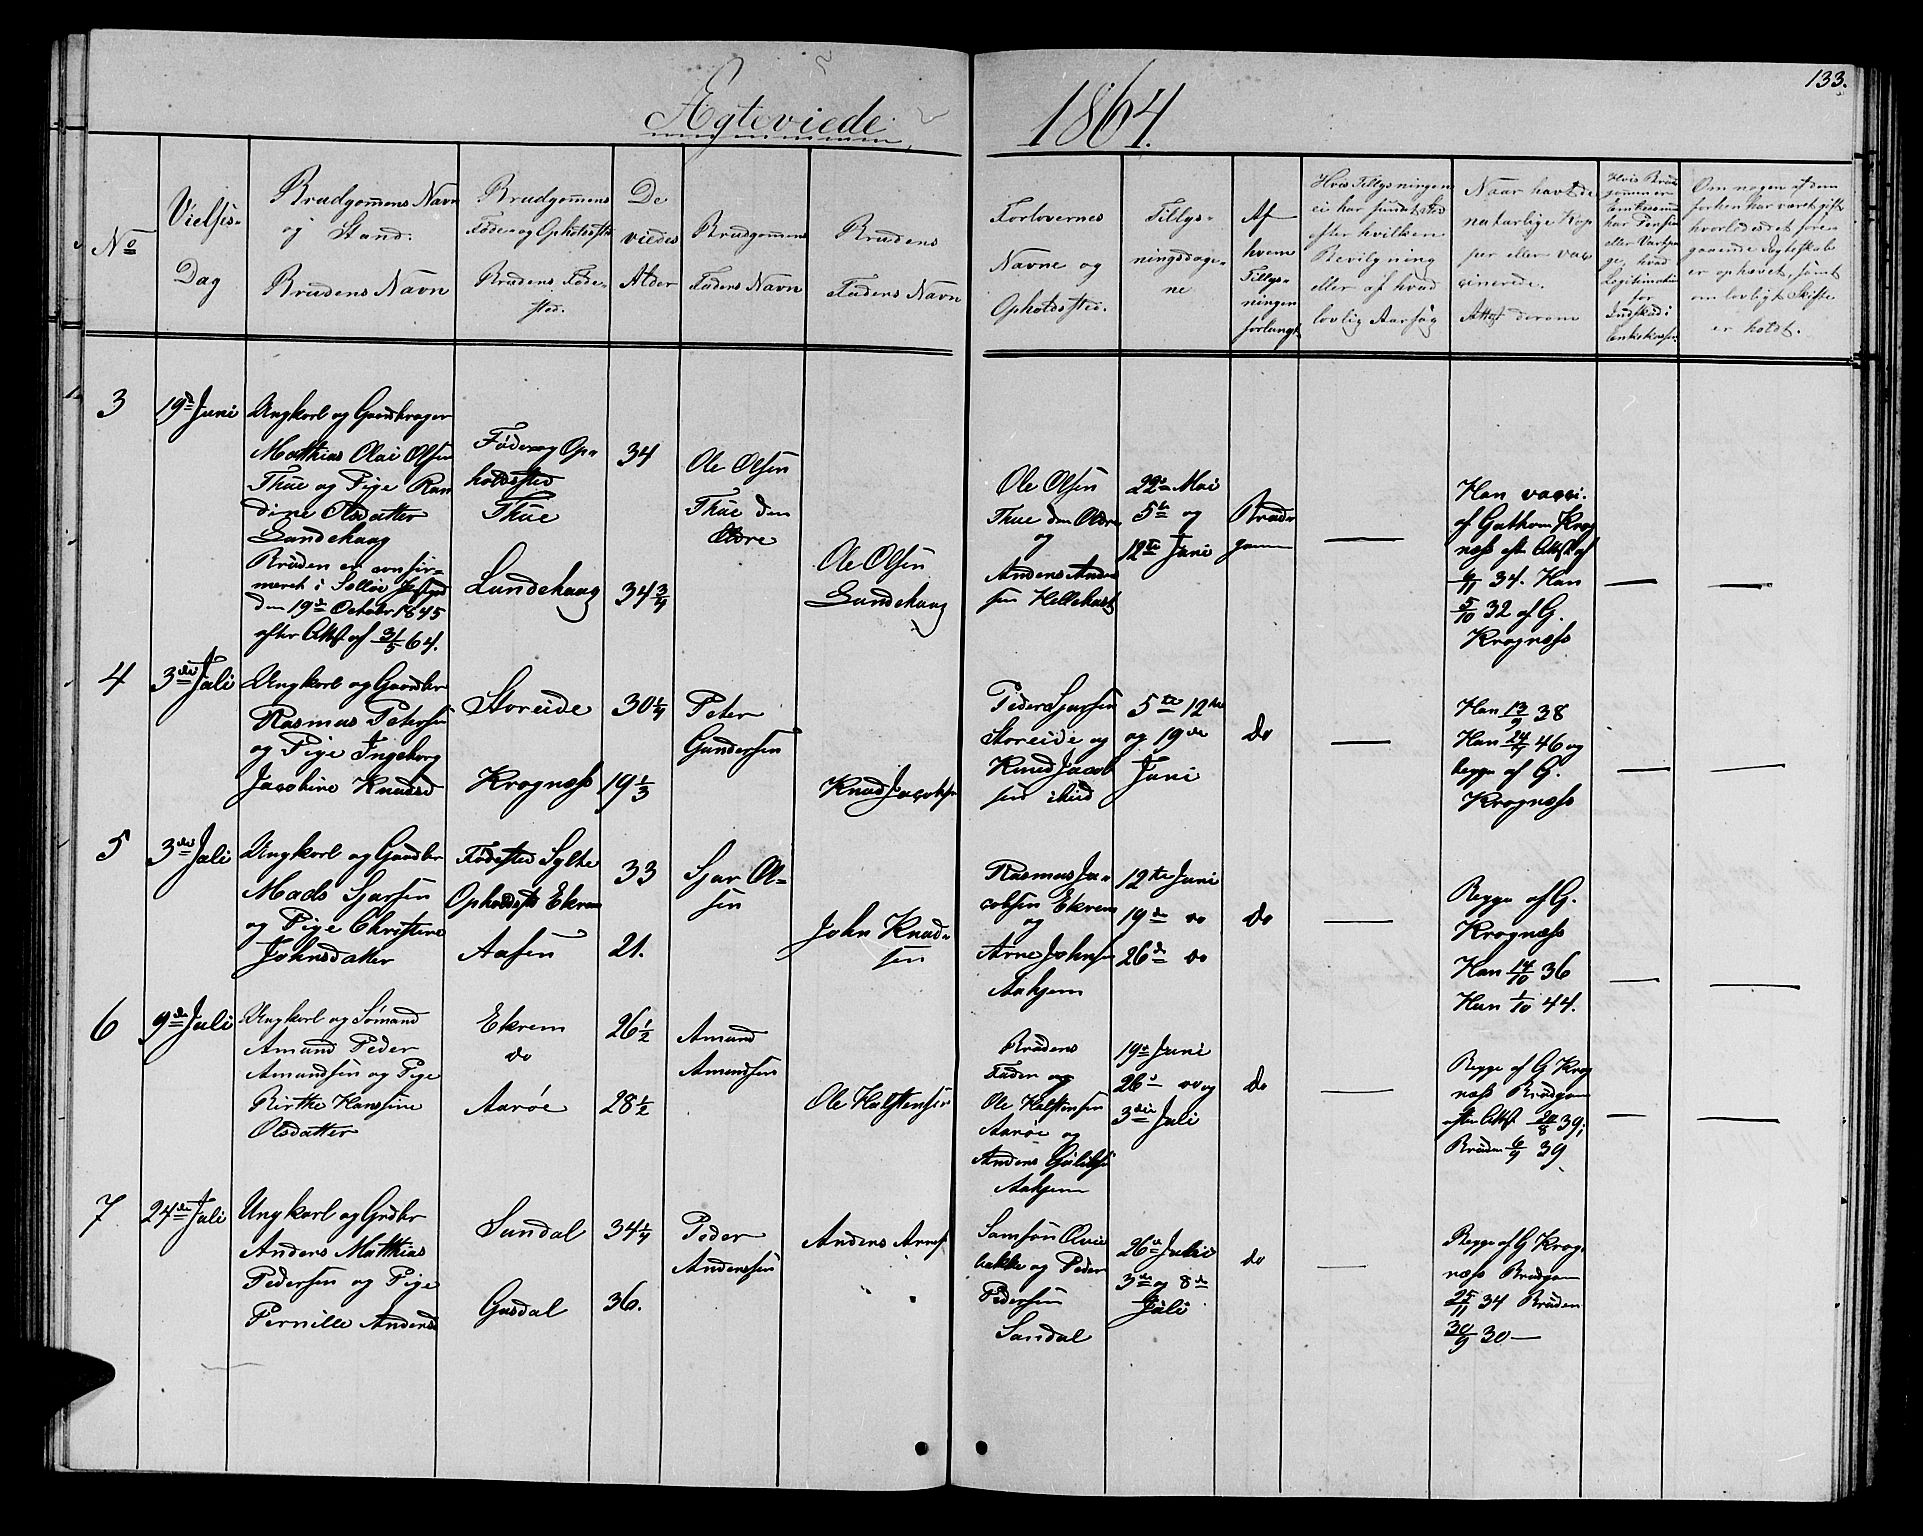 133.
Ægteviede 1864.
No
Vielses-
Dag
Brudgommens Navn
og Stand.
Brudens Navn
Brudgommens
Føde- og Opholdssted
Brudens Føde-
sted.
De
viedes
Alder
Brudgommens
Faders Navn
Brudens
Faders Navn
Forlovernes
Navne og
Opholdssted.
Tillys-
ningsdage-
ne
Af
hvem
Tillys-
ningen
forlangt
Hvis Tillysningen
ei har fundet Sted
efter hvilken
Bevilgning
eller af hvad
lovlig Aarsag
Naar havt de
naturlige Kop
per eller vac
cinerede.
Attest derom
Hvis Brud
gommen er
Enkemand
har
eller
ge, hvad
Legitimation
for
Indskud i
Enkekassen
Om nogen af dem
forhen har været gift
hvorledes det fore-
gaaende Ægteskab
er ophævet, samt
om lovligt Skifte
er holdt.
3
19de Juni
Ungkarl og Gaardbruger
Mathias Olai Olsen
Thue og Pige Ran
dine Olsdatter
Lundehaug
Bruden er confir-
meret i
den 19de October 1845
efter Attst af 31/5 64.
Føde og Op-
holdssted
Thue
Lundehaug
34
34 3/4
Ole Olsen
Thue den
Ældre
Ole Olsen
Lundehaug
Ole Olsen
Thue den Ældre
og
Anders Ander
sen Hellehust
22de Mai
5te og
12te Juni
Brud
gom
—
Han vacci.
af Guthorm Krog
næss eft Attst af
6/11 34. Hun
5/10 32 af G.
Krognæss
—
—
4
3die Juli
Ungkarl og Gaardbr
Rasmus Petersen
og Pige Ingeborg
Jacobine Knudsd
Storeide
Krognæss
30 1/4
19 1/3
Peter
Gundersen
Knud Jacobsen
Peder Sjursen
Storeide og
Knud Jacob
sen ibid
5te 12te
og 19de
Juni
do
—
Han 13/9 38
Hun 24/7 46 og
begge af G.
Krognæss
—
—
5
3die Juli
Ungkarl og Gaardbr
Mads Sjursen
og Pige Christine
Johnsdatter
Fødested Sylte
Opholdsst Ekrem
Aasen
33
21.
Sjur Ol-
sen
John Knud-
sen
Rasmus Ja-
cobsen Ekrem
og
Arne Johnsen
Aahjem
12te Juni
19de do
26de do
do
—
Begge af G.
Krognæss
Han 14/10 36
Hun 1/10 44.
—
—
6
9de Juli
Ungkarl og Sømand
Amund Peder
Amundsen og Pige
Birthe Hansine
Olsdatter
Ekrem
do
Aarøe
26 1/2
28 1/2
Amund
Amundsen
Ole Halstensen
Brudens
Fader og
Ole Halstensen
Aarøe og
Anders
Aahjem
19de Juni
26de do og
3die Juli
do
—
Begge af G Krog
næss Brudgom
efter Attst 20/8 39;
Bruden 6/9 39
—
—
7
24de Juli
Ungkarl og Grdbr
Anders Mathias
Pedersen og Pige
Pernille Andersd
Sundal
Gusdal
34 1/4
36.
Peder
Anderssen
Anders Arnes
Samson Ørie
bakke og Peder
Pedersen
Sundal
26de Julii
3die og 8de
Juli
do
—
Begge af G Krog
næss Brudgom
25/11 34 Bruden
30/9 30 —